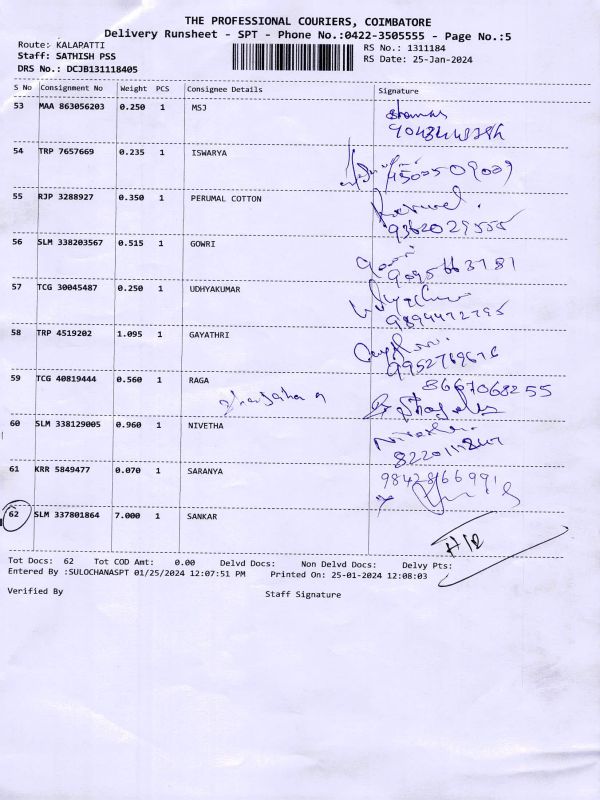 THE PROFESSIONAL COURIERS, COIMBATORE
Delivery Runsheet - SPT - Phone No.:0422-3505555 - Page No.:5
Route: KALAPATTI
RS No.: 1311184
Staff: SATHISH PSS
RS Date: 25-Jan-2024
DRS No.: DCJB131118405
S No Consignment No Weight PCS Consignee Details Signature
53 MAA 863056203 0.250 1 MSJ
54 TRP 7657669 0.235 1 ISWARYA
55 RJP 3288927 0.350 1 PERUMAL COTTON
9362029555
56 SLM 338203567 0.515 1 GOWRI
Gowri
9095663781
57 TCG 30045487 0.250 1 UDHYAKUMAR
9894472795
58 TRP 4519202 1.095 1 GAYATHRI
9952769676
59 TCG 40819444 0.560 1 RAGA
8667068255
60 SLM 338129005 0.960 1 NIVETHA
61 KRR 5849477 0.070 1 SARANYA
9842866991
62 SLM 337801864 7.000 1 SANKAR
Tot Docs: 62 Tot COD Amt: 0.00 Delvd Docs: Non Delvd Docs: Delvy Pts:
Entered By :SULOCHANASPT 01/25/2024 12:07:51 PM Printed On: 25-01-2024 12:08:03
Verified By Staff Signature